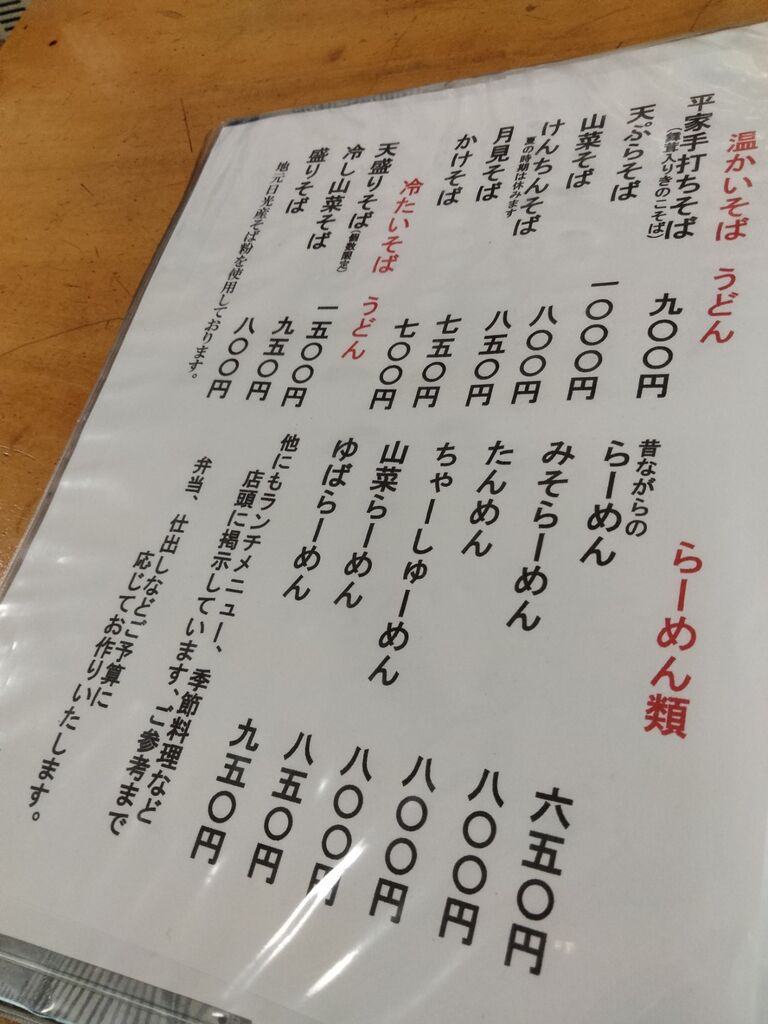 温かいそば うどん
平家手打ちそば 九〇〇円
(舞茸入りきのこそば)
天ぷらそば 一〇〇〇円
山菜そば 八〇〇円
けんちんそば 八五〇円
夏の時期は休みます
月見そば 七五〇円
かけそば 七〇〇円
冷たいそば うどん
天盛りそば(個数限定) 一五〇〇円
冷し山菜そば 九五〇円
盛りそば 八〇〇円
地元日光産そば粉を使用しております。
らーめん類
昔ながらの
らーめん 六五〇円
みそらーめん 八〇〇円
たんめん 八〇〇円
ちゃーしゅーめん 八〇〇円
山菜らーめん 八五〇円
ゆばらーめん 九五〇円
他にもランチメニュー、季節料理など
店頭に掲示しています、ご参考まで
弁当、仕出しなどご予算に
応じてお作りいたします。